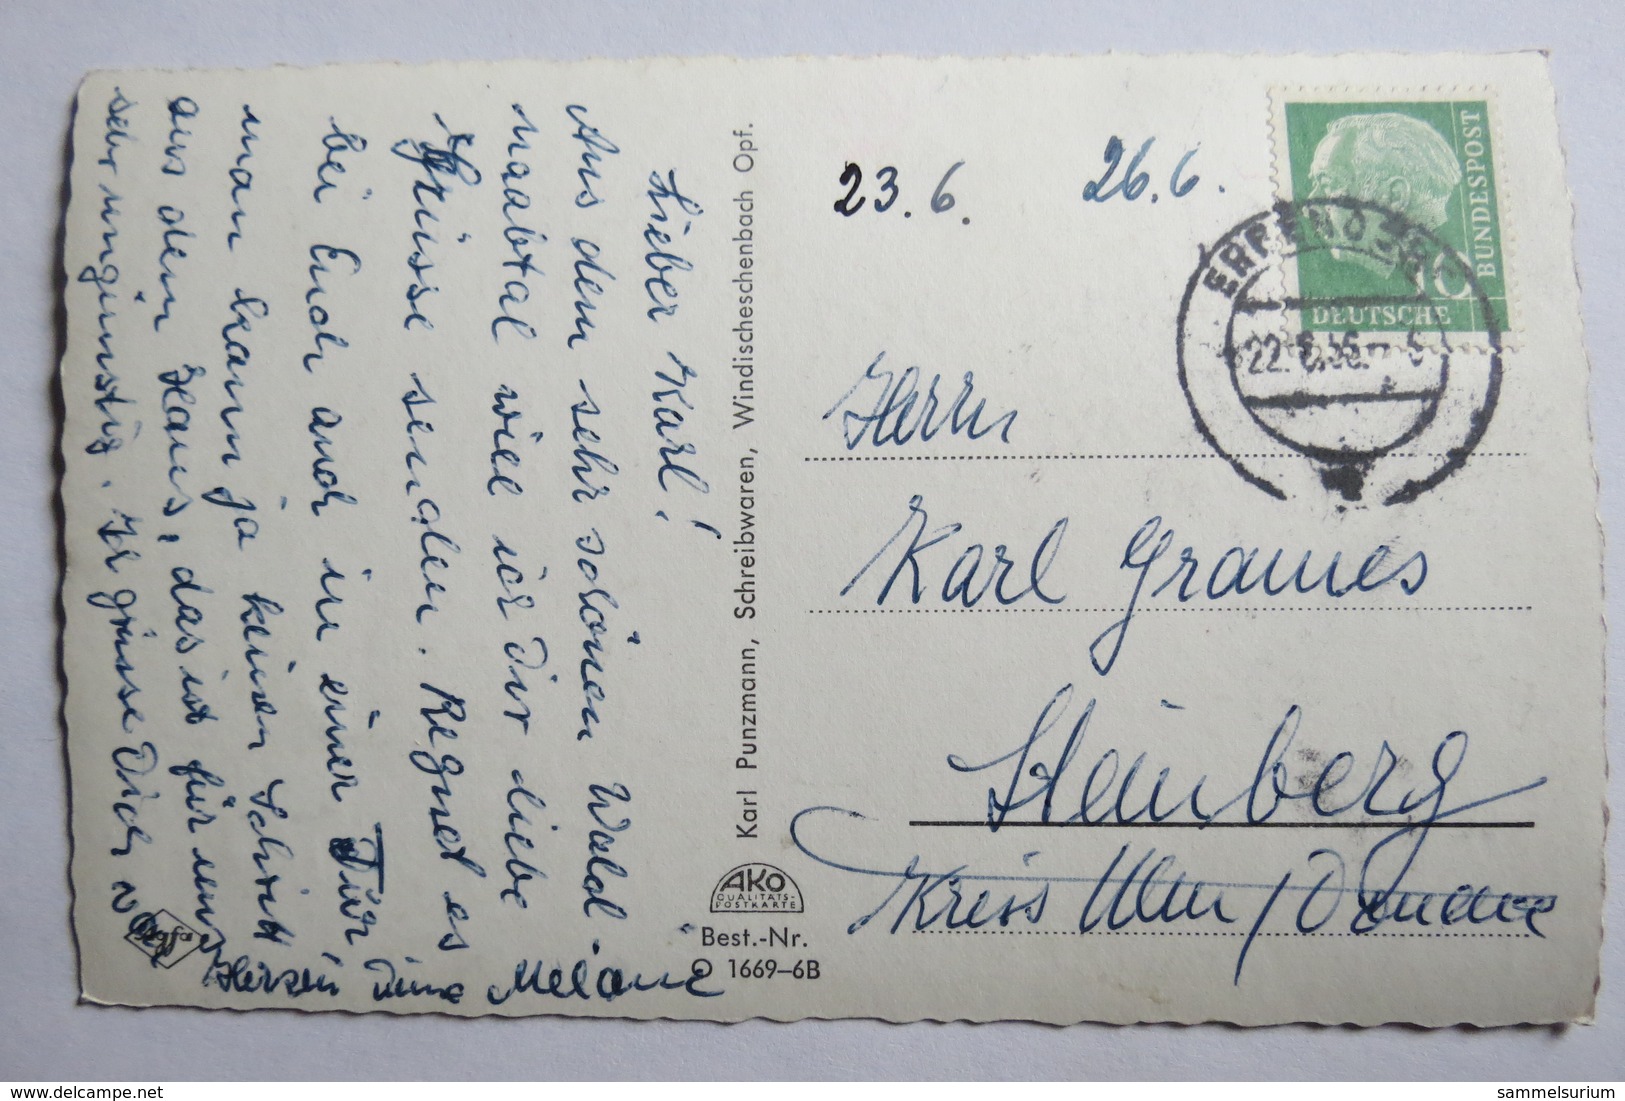 Lieber Karl!
Aus dem sehr schönen Wald-
naabtal will ich Dir liebe
Grüsse senden. Regnet es
bei Euch auch in einer Tour
man kann ja keinen Schritt
aus dem Haus, das ist für uns
sehr ungünstig. Es grüsse Dich von
Herzen Deine Melanie
Karl Punzmann, Schreibwaren, Windischeschenbach Opf.
AKO
QUALITÄTS-
POSTKARTE
Best.-Nr.
O 1669–6B
23.6.
26.6.
DEUTSCHE
BUNDESPOST
10
ERPENDORF
22.6.56.
Herrn
Karl Grames
Steinberg
Kreis Ulm/Donau
sammelsurium